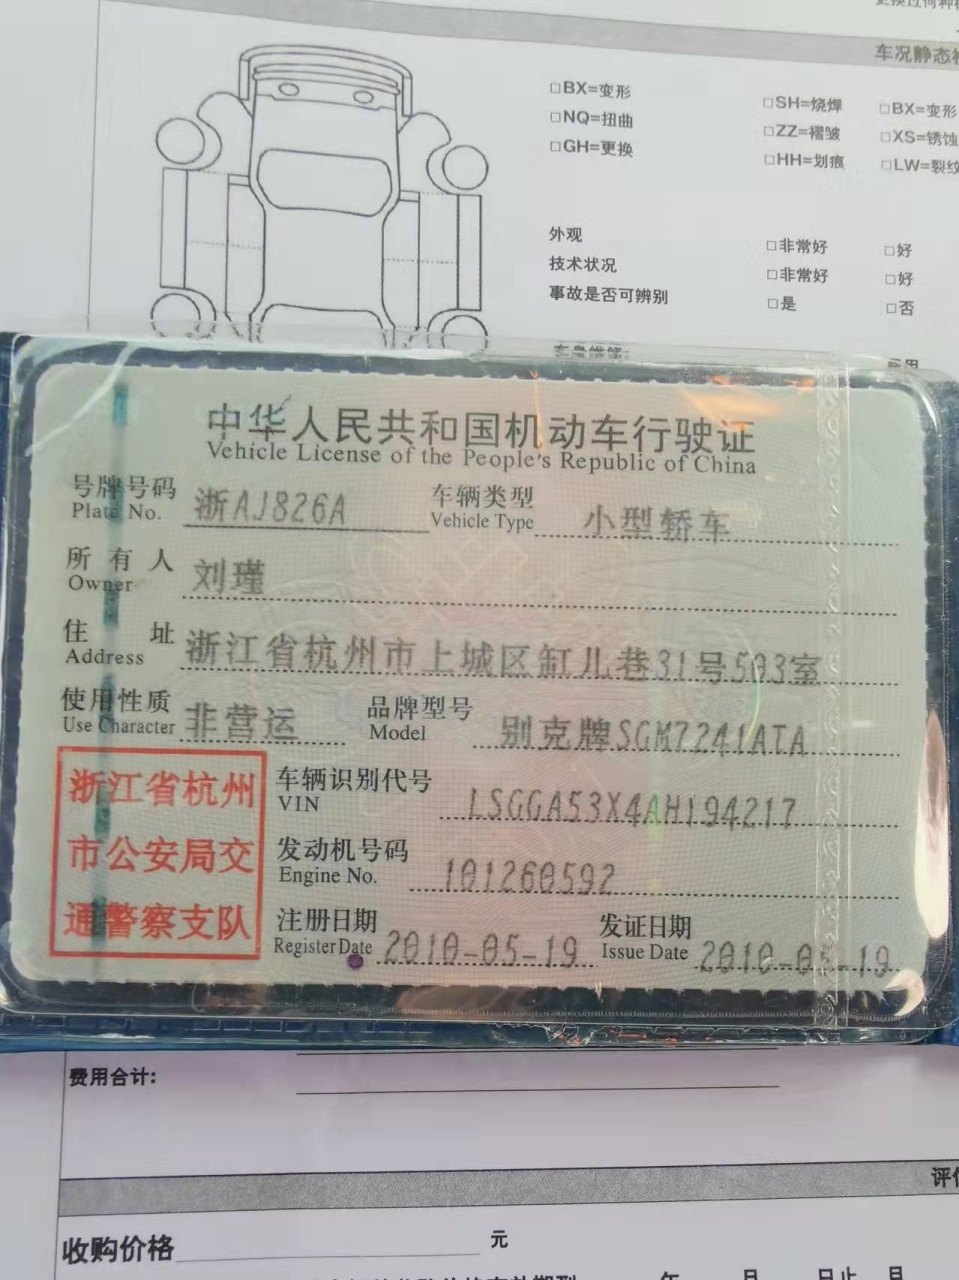 车况静态检
□BX=变形 □SH=烧焊 □BX=变形
□NQ=扭曲 □ZZ=褶皱 □XS=锈蚀
□GH=更换 □HH=划痕 □LW=裂纹
外观 □非常好 □好
技术状况 □非常好 □好
事故是否可辨别 □是 □否
中华人民共和国机动车行驶证
Vehicle License of the People's Republic of China
号牌号码 浙AJ826A 车辆类型 小型轿车
Plate No. Vehicle Type
所有人 刘瑾
Owner
住址 浙江省杭州市上城区缸儿巷31号503室
Address
使用性质 非营运 品牌型号 别克牌SGM7241ATA
Use Character Model
浙江省杭州
市公安局交
通警察支队
车辆识别代号 LSGGA53X4AH194217
VIN
发动机号码 101260592
Engine No.
注册日期 2010-05-19 发证日期 2010-05-19
Register Date Issue Date
费用合计:
评估
收购价格 元
年 月 日止 月